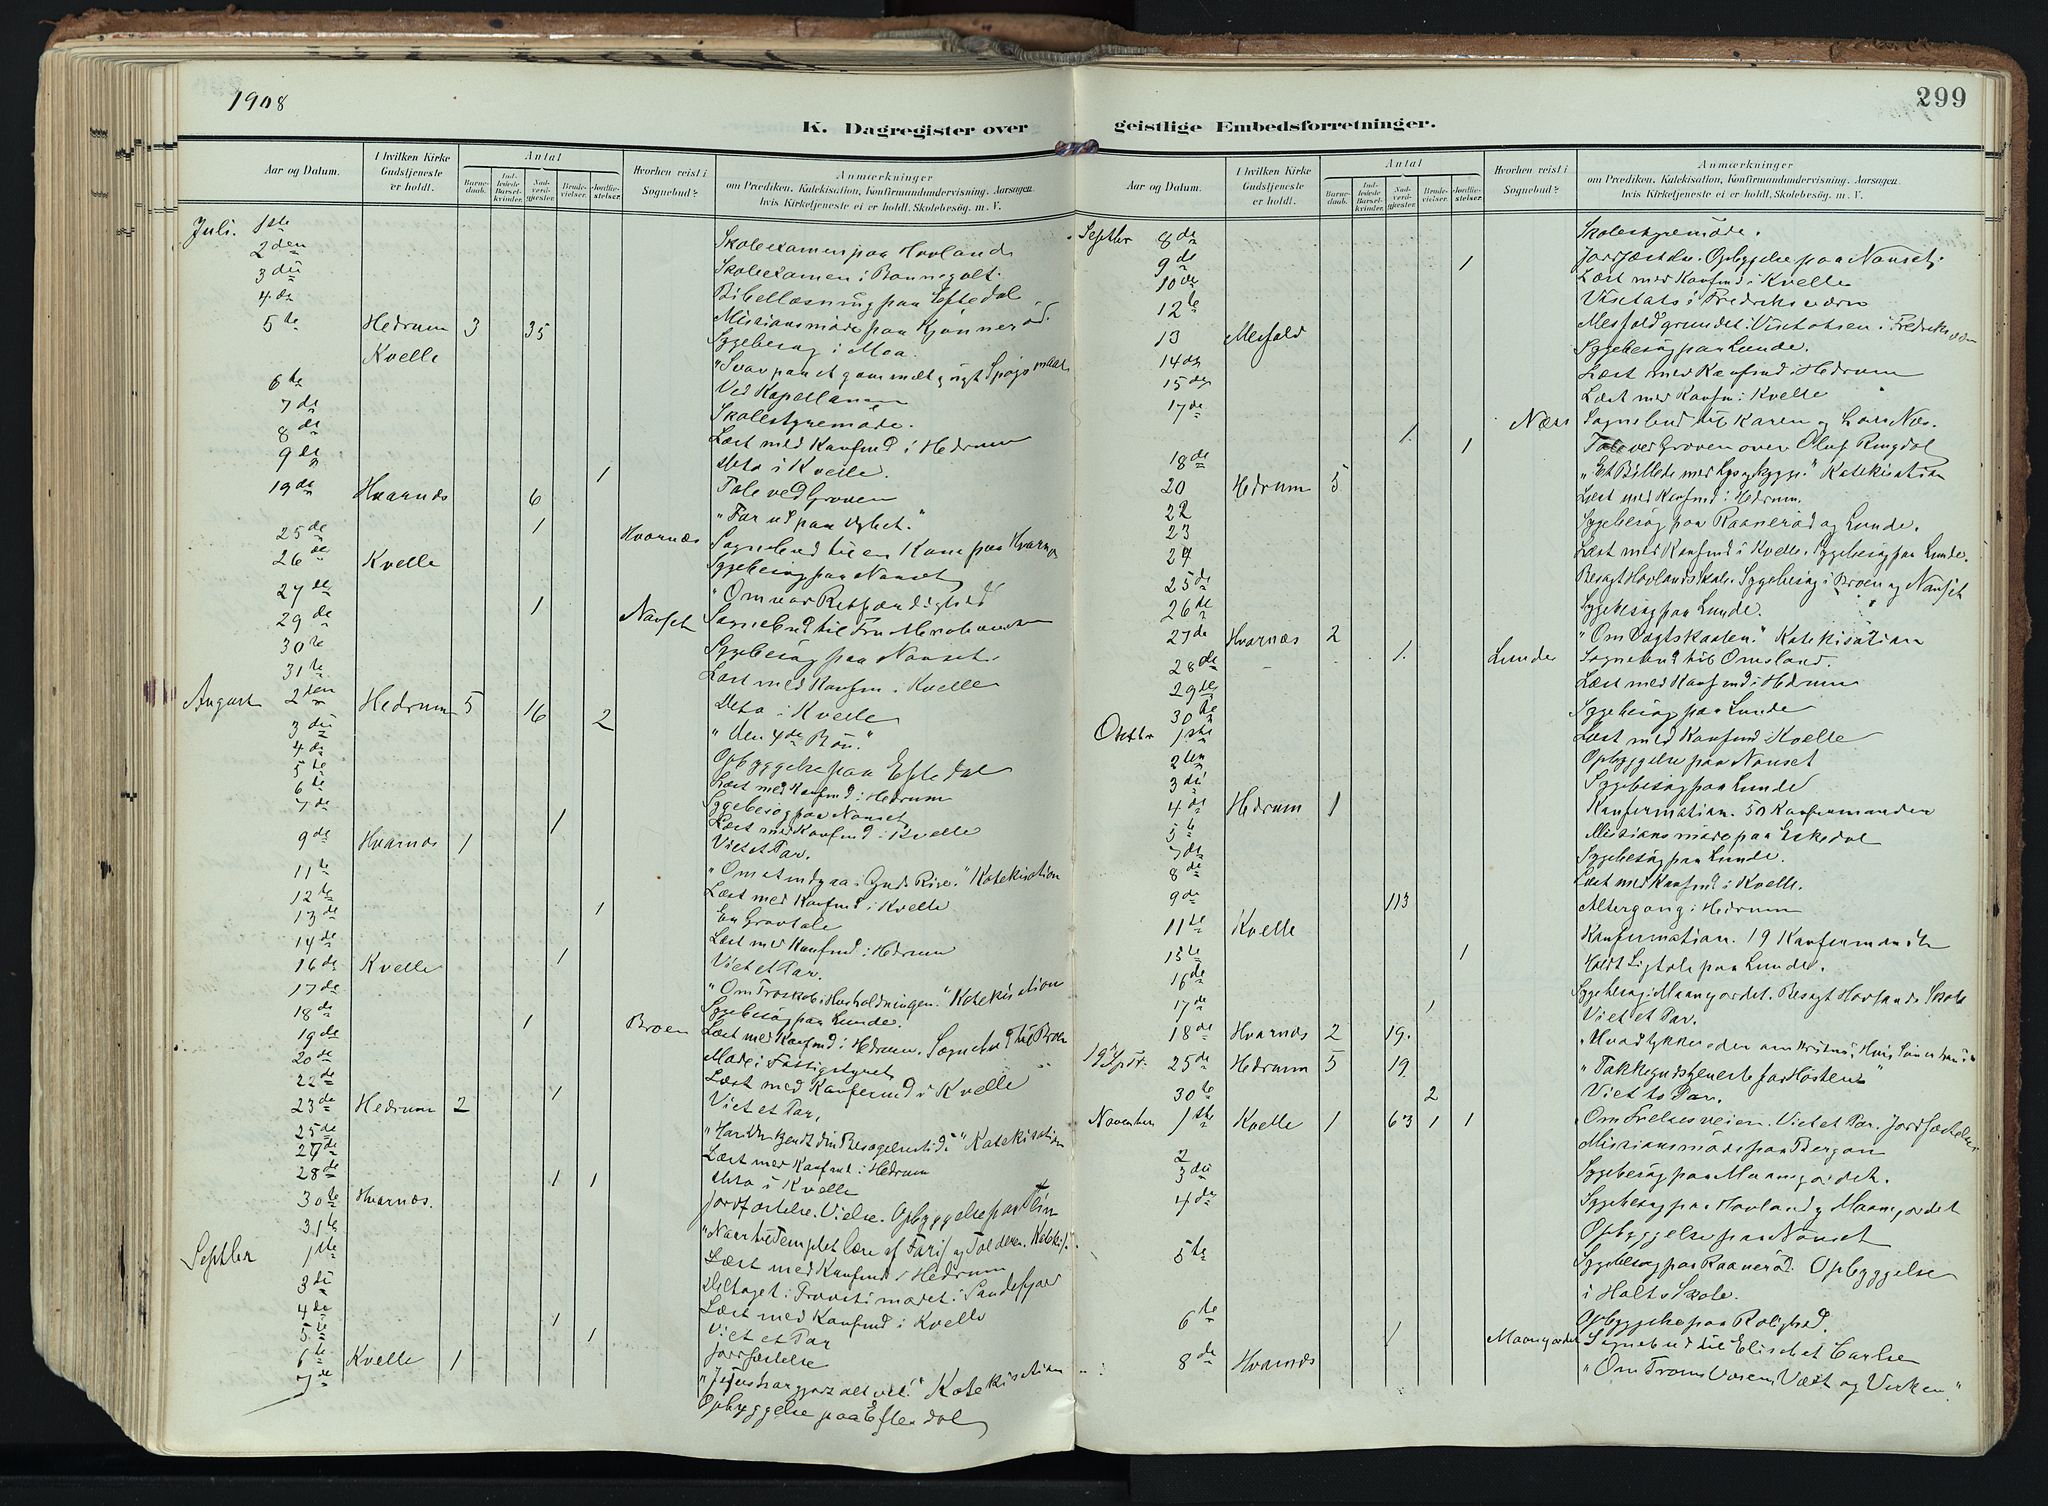 1908
299
K. Dagregister over geistlige Embedsforretninger.
Aar og Datum. I hvilken Kirke Gudstjeneste er holdt. Antal Barnedaab. Indledede Barselkvinder. Nadverdgjester. Brudevielser. Jordfæstelser. Hvorhen reist i Sognebud? Anmærkninger om Prædiken, Katekisation, Konfirmandundervisning, Aarsagen hvis Kirketjeneste ei er holdt, Skolebesøg m. V.
Juli. 1ste Skoleexamen paa Hovland
2den Skoleexamen i Bonnegolt.
3die Bibellæsning paa Eftedal
4de Missionsmøde paa Kjønnerød.
5te Hedrum 3 35 Sygebesøg i Moa.
Kvelle "Svar paa et gammelt og nyt Spørgsmaal
6te Ved Kapellanen
7de Skolestyremøde.
8de Læst med Konfmd i Hedrum
9de Dito i Kvelle.
1 Tale ved Graven
19de Hvarnes 6 "Far ud paa Dybet."
25de 1 Hvarnæs Sognebud til en Kone paa Hvarnes
26de Kvelle Sygebesøg paa Nanset
27de "Om vor Retfærdighed
29de 1 Nanset Sognebud til Fru
30te Sygebesøg paa Nanset.
31te Læst med Konfm i Kvelle
August 2den Hedrum 5 16 2 Dito i Kvelle
3die "Den 4de Bøn."
4de Opbyggelse paa Eftedal
5te Læst med Konfmd i Hedrum
6te Sygebesøg paa Nanset
7de 1 Læst med Konfmd i Kvelle
9de Hvarnæs 1 Viet et Par.
11te "Om at indgaa i Guds Rige." Katekisation
12te Læst med Konfmd i Kvelle
13de 1 En Gravtale
14de Læst med Konfmd i Hedrum
16de Kvelle 1 Viet et Par.
17de "Om Troskab i Husholdningen." Katekisation
18de Sygebesøg paa Lunde.
19de 1 Broen Læst med Konfmd i Hedrum. Sognebud til Broen
20de Møde i Fattigstyret
22de Læst med Konfirmd i Kvelle
23de Hedrum 2 1 Viet et Par.
25de "Har du kjendt din Besøgelsestid" Katekisation
27de Læst med Konfmd i Hedrum
28de 1 1 Dito i Kvelle
30te Hvarnæs. Jordfæstelse. Vielse. Opbyggelse paa
31te "Naar Templet lære af Faris og Tolderen. Katekis.
Septbr 1ste Læst med Konfmd i Hedrum
3die Deltaget i Provstimødet i Sandefjord
4de 1 Læst med Konfmd i Kvelle
5te 1 Viet et Par
6te Kvelle 1 Jordfæstelse
7de "Jesus har gjort alt vel." Katekisation
Opbyggelse paa Eftedal
Septbr 8de Skolestyremøde.
9de 1 Jordfæstelse. Opbyggelse paa Nanset.
10de Læst med Konfmd i Kvelle
12te Visitats i Fredriksværn
13 Mesfald Mesfald grundet Visitatsen i Fredriksværn
14de Sygebesøg paa Lunde.
15de Læst med Konfmd i Hedrum
17de Læst med Konfm i Kvelle
1. Næss Sognebud til Karen og Lars Næs.
18de 1 Tale ved Graven over Oluf Ringdal
20 Hedrum 5 "Et Billede med Lys og Skygge." Katekisation
22 Læst med Konfmd i Hedrum.
23 Sygebesøg paa Raanerød og Lunde.
24 Læst med Konfmd i Kvelle. Sygebesøg paa Lunde.
25de Besøgt Hovlands Skole. Sygebesøg i Broen og Nanset
26de Sygebesøg paa Lunde.
27de Hvarnæs 2 "Om Vægtskaalen." Katekisation
28de 1. Lunde Sognebud til Omsland.
29de Læst med Konfmd i Hedrum
30te Sygebesøg paa Lunde
Octbr 1ste Læst med Konfmd i Kvelle
2den Opbyggelse paa Nanset
3die Sygebesøg paa Lunde
4de Hedrum 1 Konfirmation. 50 Konfirmander
5te Missionsmøde paa Eskedal
7de Sygebesøg paa Lunde.
8de Læst med Konfmd i Kvelle.
9de 113 Altergang i Hedrum
11te Kvelle Konfirmation. 19 Konfirmander
15te 1 Holdt Ligtale paa Lunde.
16de Sygebesøg i Maangordet. Besøgt Hovlands Skole
17de 1 Viet et Par.
18de Hvarnæs 2 19. "Hvad tykkes eder om Kristus, Hvis Søn er han."
25de Hedrum 5 19. "Takkegudstjeneste for Høsten"
30te 2 Viet to Par.
November 1ste Kvelle 1 63 1 1 "Om Frelsesveien. Viet et Par. Jordfæstelse
2 Missionsmøde paa Bergan
3die Sygebesøg paa Maangordet.
4de Sygebesøg paa Hovland og Maangordet
Opbyggelse paa Nanset
5te Sygebesøg paa Raanerød. Opbyggelse
i Holts Skole.
6te Opbyggelse paa Rolighed.
1 Maangordet Sognebud til Elisabet Carlsen
8de Hvarnæs "Om Troens Væsen, Vækst og Virken."